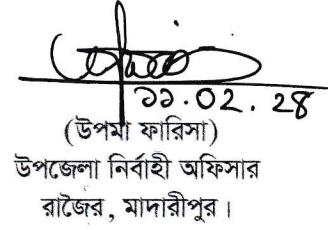 ১১.০২.২৪
(উপমা ফারিসা)
উপজেলা নির্বাহী অফিসার
রাজৈর, মাদারীপুর।